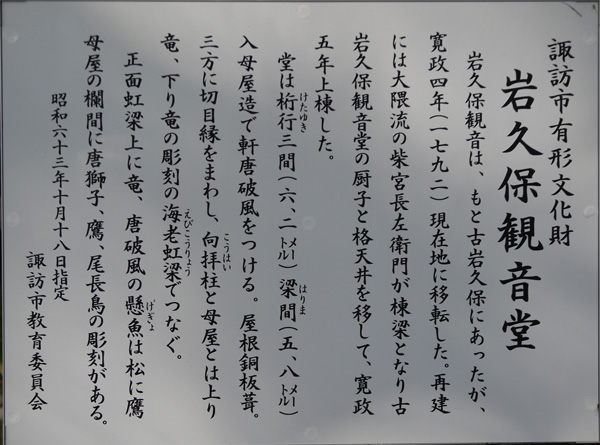 諏訪市有形文化財
岩久保観音堂
岩久保観音は、もと古岩久保にあったが、
寛政四年(一七九二)現在地に移転した。再建
には大隈流の柴宮長左衛門が棟梁となり古
岩久保観音堂の厨子と格天井を移して、寛政
五年上棟した。
堂は桁行三間(六、二メートル)梁間(五、八メートル)
けたゆき
はりま
入母屋造で軒唐破風をつける。屋根銅板葺。
三方に切目縁をまわし、向拝柱と母屋とは上り
こうはい
竜、下り竜の彫刻の海老虹梁でつなぐ。
えびこうりょう
正面虹梁上に竜、唐破風の懸魚は松に鷹
げぎょ
母屋の欄間に唐獅子、鷹、尾長鳥の彫刻がある。
昭和六十三年十月十八日指定
諏訪市教育委員会